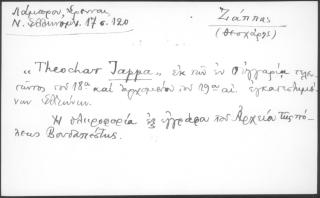 Λάμπρου, Έρευναι,
Ν. Ελλην/μων. 17 σ. 120
Ζιάππας
(Θεοχάρης)
"Theochar Jappa" εκ των εν Ουγγαρία τελευ-
τώντος του 18ου και αρχομένου του 19ου αι. εγκατεστημέ-
νων Ελλήνων.
Η πληροφορία εξ εγγράφου του Αρχείου της πό-
λεως Βουδαπέστης.